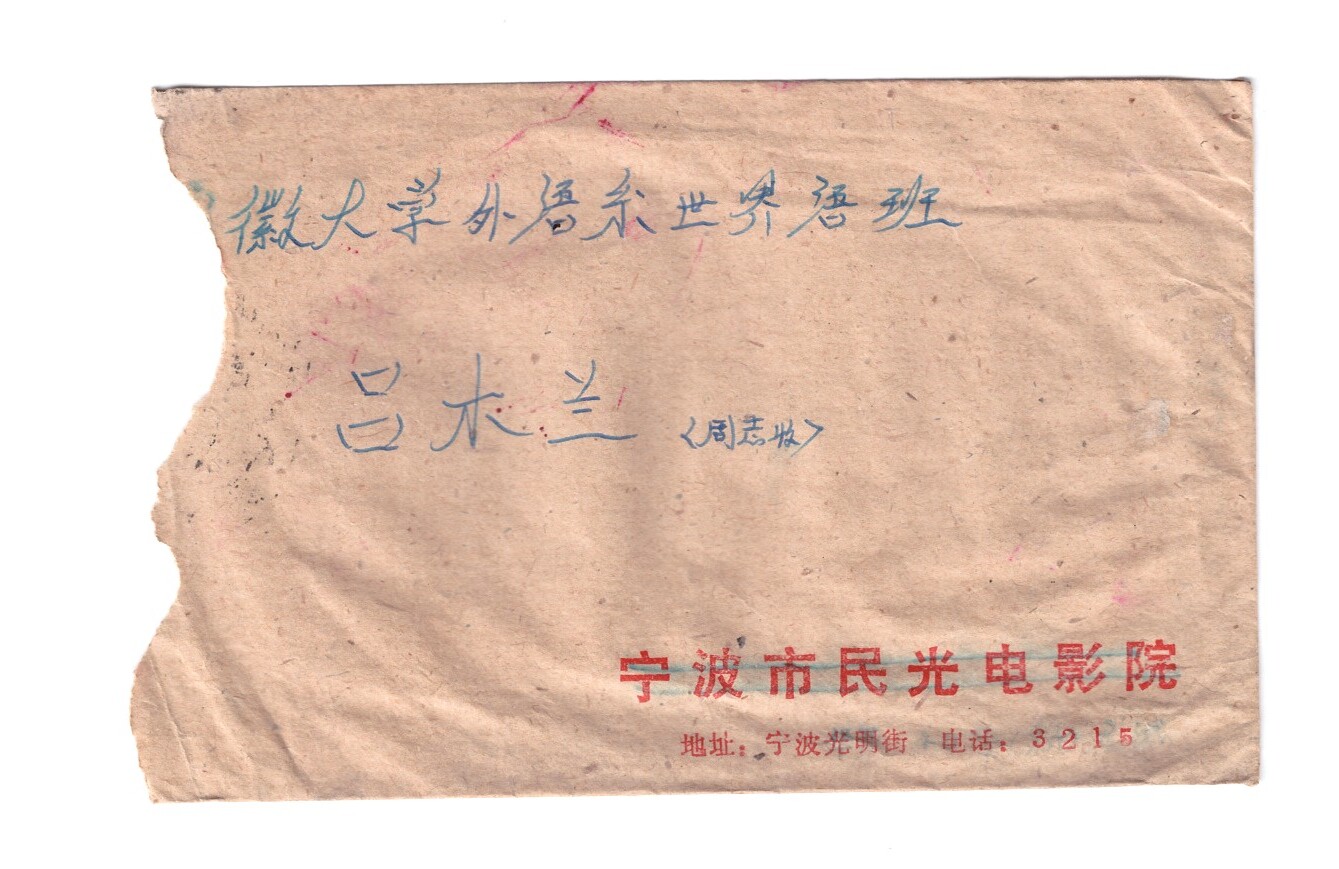 徽大学外语系世界语班
吕木兰〈周志收〉
宁波市民光电影院
地址：宁波光明街 电话：3215